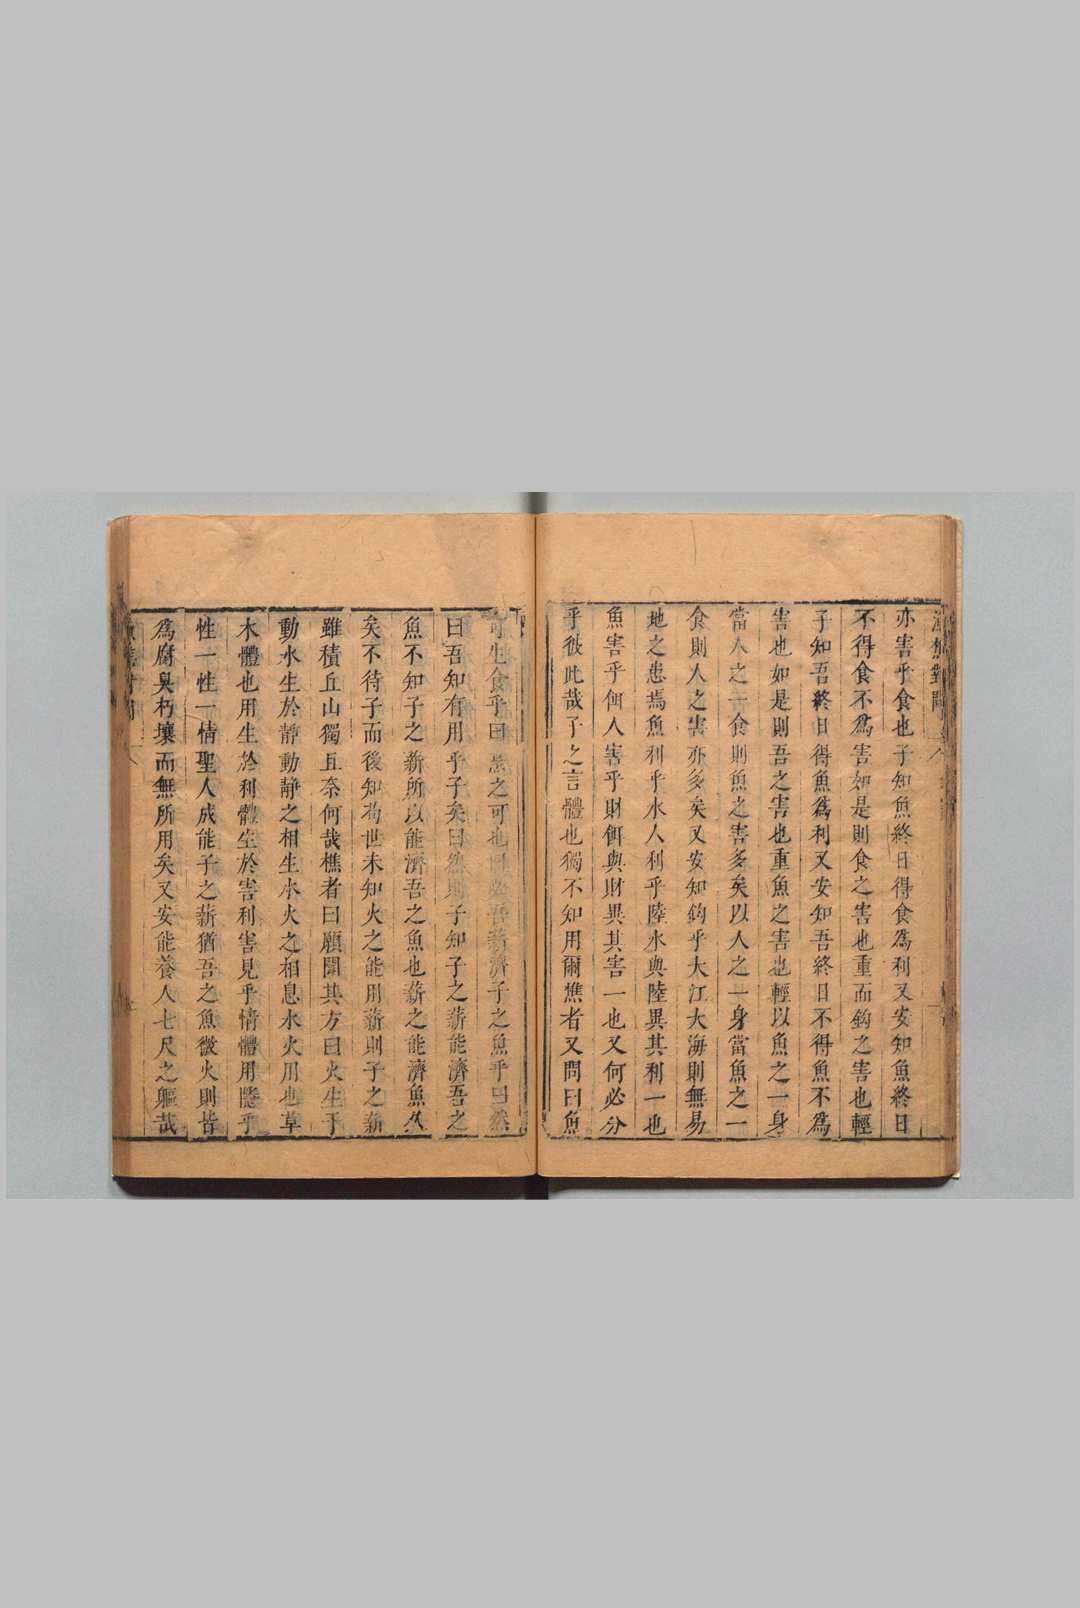 漁樵對問
亦害乎食也子知魚終日得食爲利又安知魚終日
不得食不爲害如是則食之害也重而鈎之害也輕
子知吾終日得魚爲利又安知吾終日不得魚不爲
害也如是則吾之害也重魚之害也輕以魚之一身
當人之一食則魚之害多矣以人之一身當魚之一
食則人之害亦多矣又安知鈎乎大江大海則無易
地之患焉魚利乎水人利乎陸水與陸異其利一也
魚害乎餌人害乎財餌與財異其害一也又何必分
乎彼此哉子之言體也獨不知用爾樵者又問曰魚
可生食乎曰烹之可也曰必吾薪濟子之魚乎曰然
曰吾知有用乎子矣曰然則子知子之薪能濟吾之
魚不知子之薪所以能濟吾之魚也薪之能濟魚久
矣不待子而後知苟世未知火之能用薪則子之薪
雖積丘山獨且奈何哉樵者曰願聞其方曰火生于
動水生於靜動靜之相生水火之相息水火用也草
木體也用生於利體生於害利害見乎情體用隱乎
性一性一情聖人成能子之薪猶吾之魚微火則皆
爲腐臭朽壞而無所用矣又安能養人七尺之軀哉